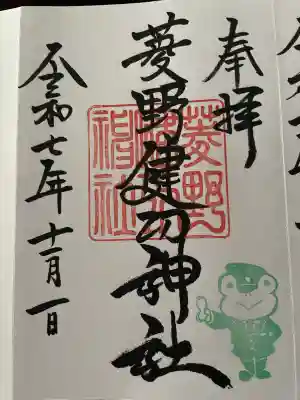 奉拝
菱野健功神社
菱野
神社
令和七年十一月一日